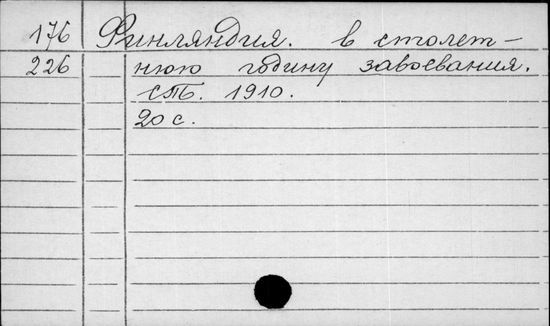 176 Финляндия. в столет-
226 нюю годину завоевания.
СПБ. 1910.
20 с.